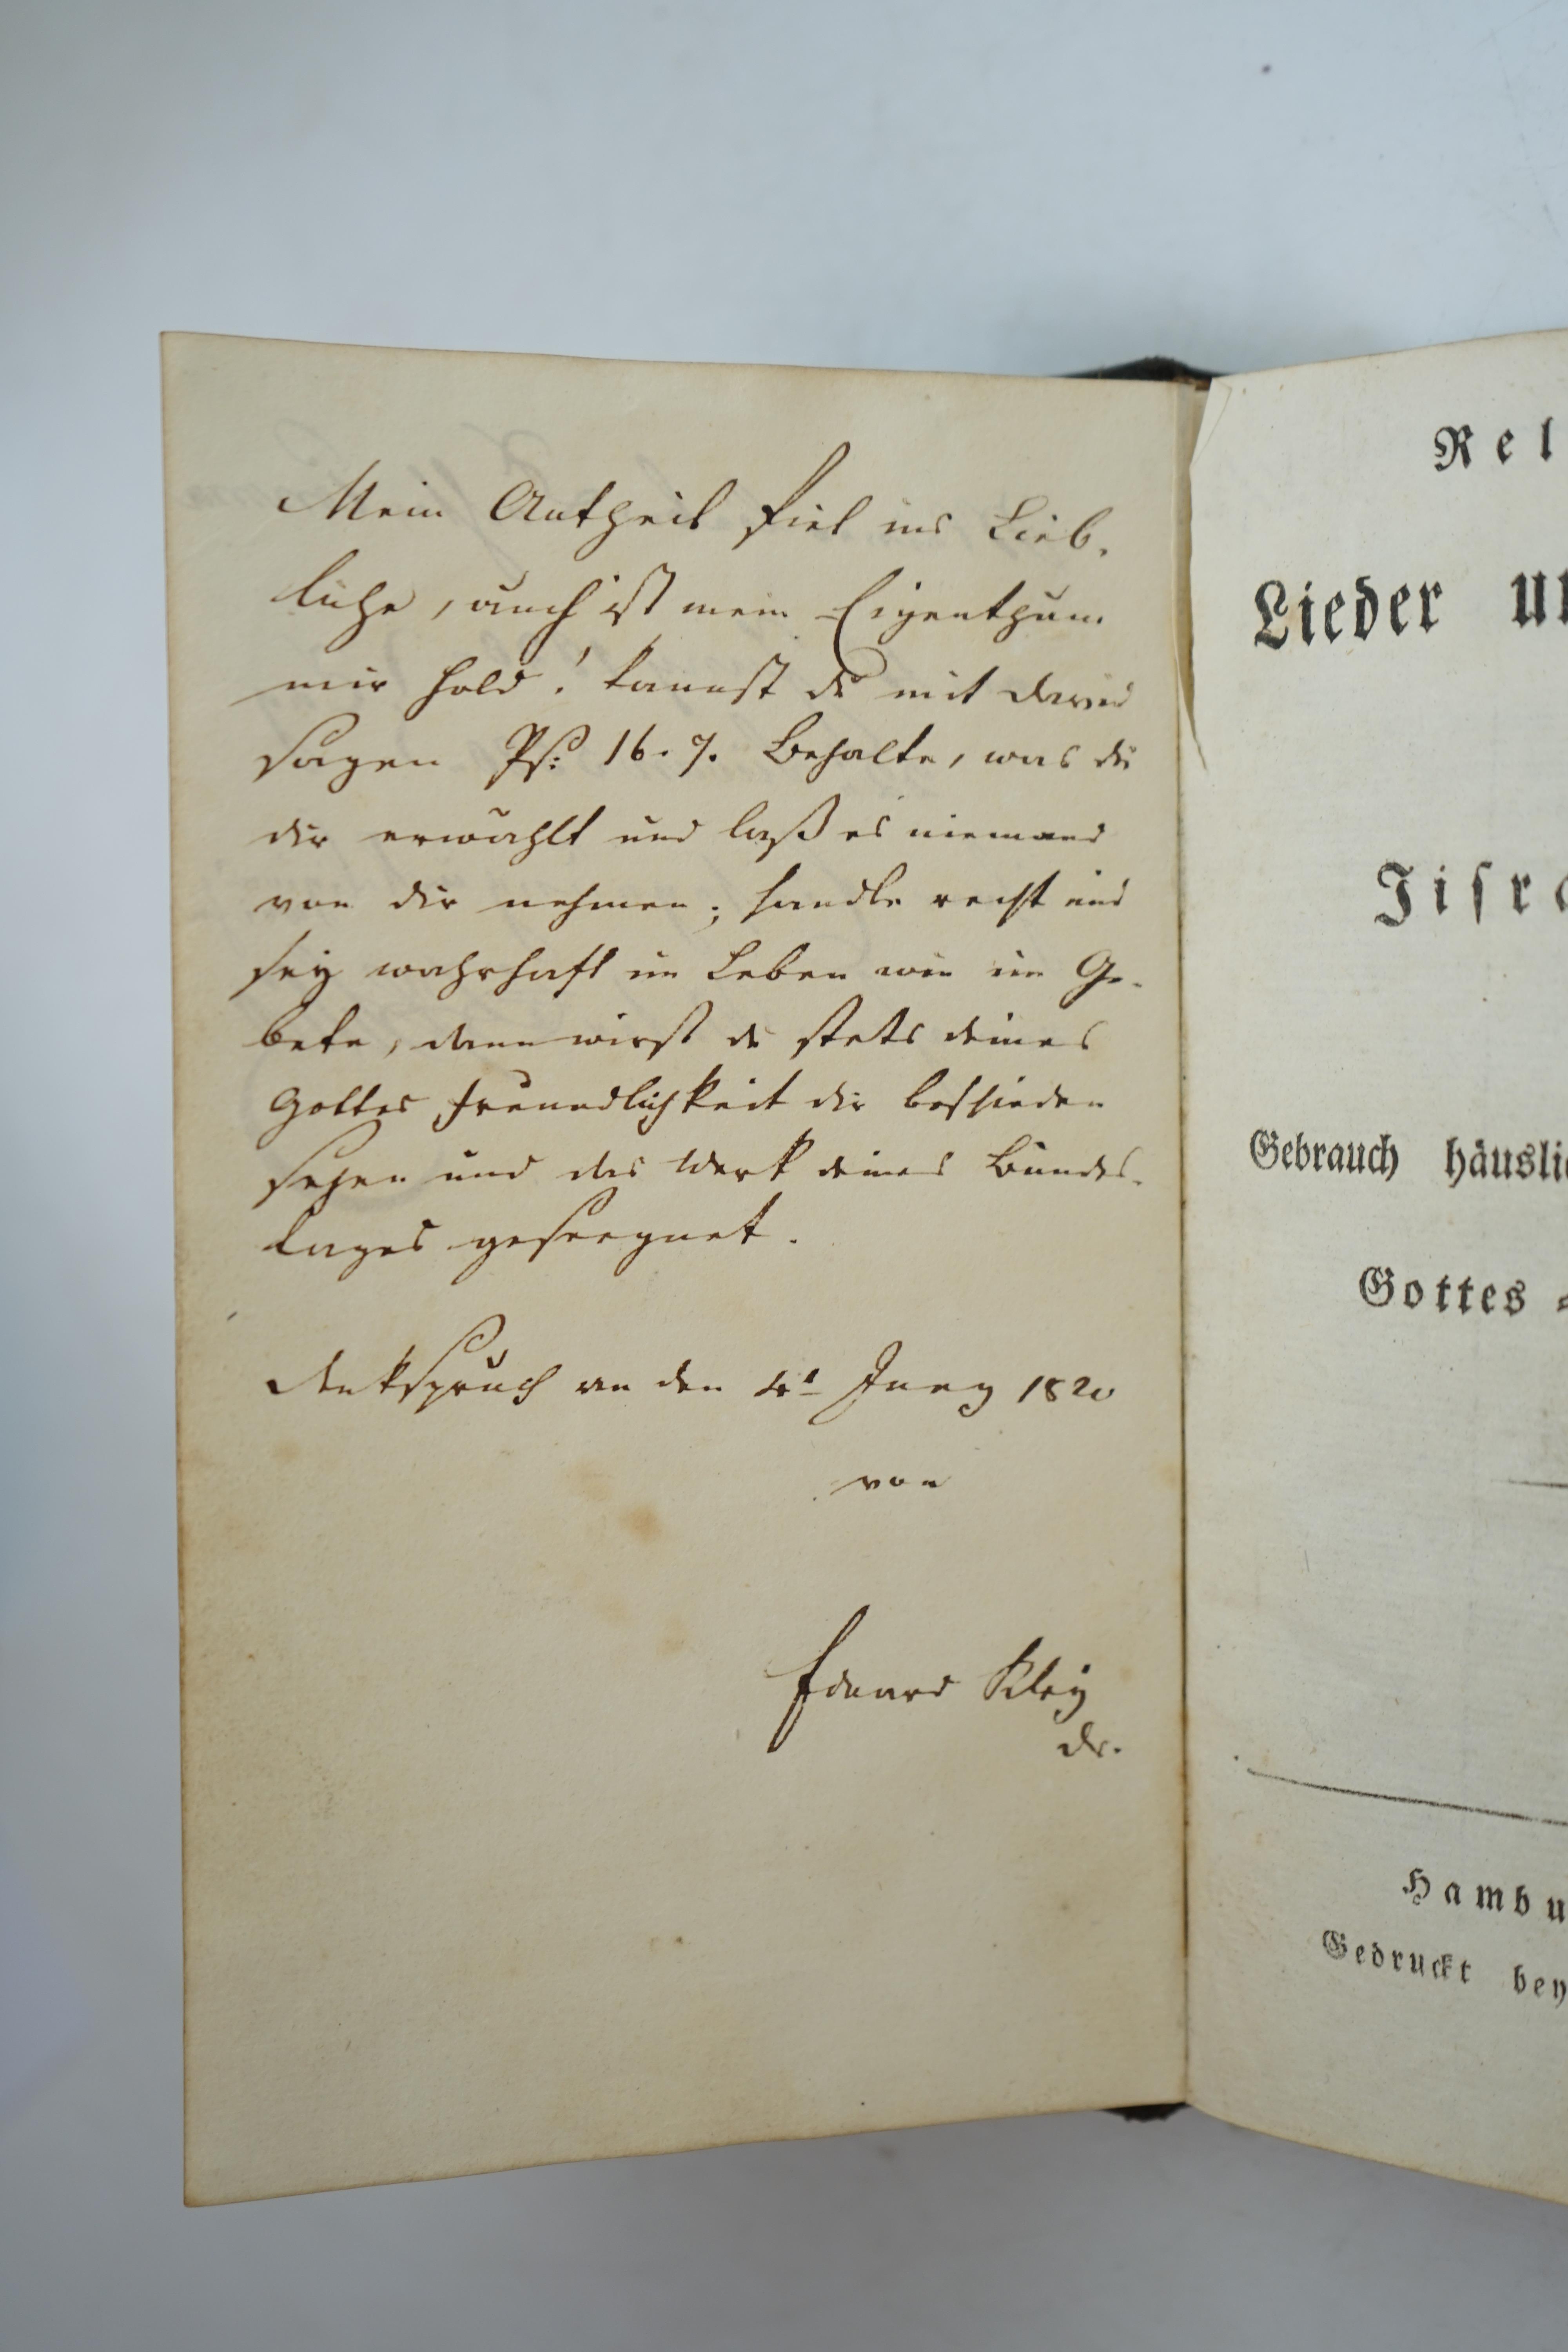 Mein Antheil fiel ins Lieb-
liche, auch ist mein Eigenthum
mir hold! kannst du mit David
sagen Ps: 16. 7. Behalte, was du
dir erwählt und laß es niemand
von dir nehmen; handle recht und
sey wahrhaft im Leben wie im Ge-
bete, dann wirst du stets deines
Gottes Freundlichkeit dir beschieden
sehen und das Werk deines Bundes-
tages geseegnet.
Denkspruch an den 4t Juny 1820
von
Eduard Kley
Dr.
Rel
Lieder un
Jisra
Gebrauch häuslic
Gottes =
Hambu
Gedruckt bey